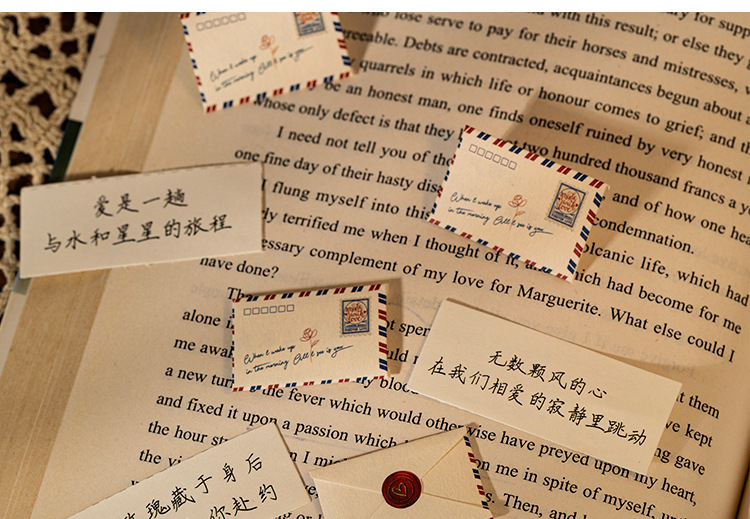 for supp
with this result; or else they
lose serve to pay for their horses and mistresses,
reeable. Debts are contracted, acquaintances begun about a
quarrels in which life or honour comes to grief; and th
be an honest man, one finds oneself ruined by very honest
whose only defect is that they
two hundred thousand francs a ye
I need not tell you of the
and of how one hea
one fine day of their hasty dis
condemnation.
I flung myself into this
volcanic life, which had
terrified me when I thought of it,
which had become for me
essary complement of my love for Marguerite. What else could I
have done?
When I wake up
in the morning All I see is you
爱是一趟
与水和星星的旅程
When I wake up
in the morning All I see is you
When I wake up
in the morning All I see is you
alone i
ot spen
t them
me awa
uld
ve kept
a new tu
my bloo
ng gave
the fever which would otherwise have preyed upon my heart,
and fixed it upon a passion which
on me in spite of myself,
the hour
Then, and
无数颗风的心
在我们相爱的寂静里跳动
玫瑰藏于身后
你赴约